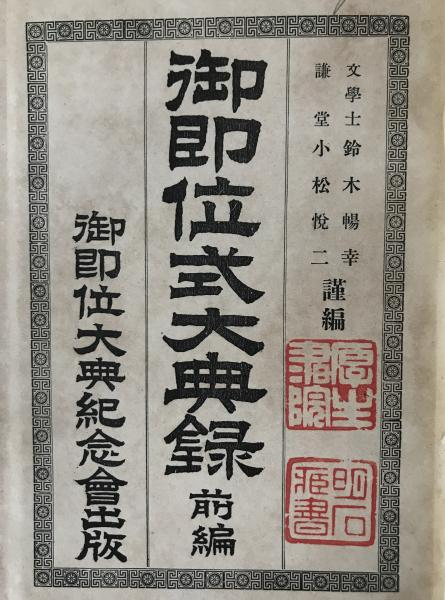 文學士鈴木暢幸
謙堂小松悅二
謹編
御即位式大典録
前編
御即位大典紀念會出版
厚生書院
明石蔵書